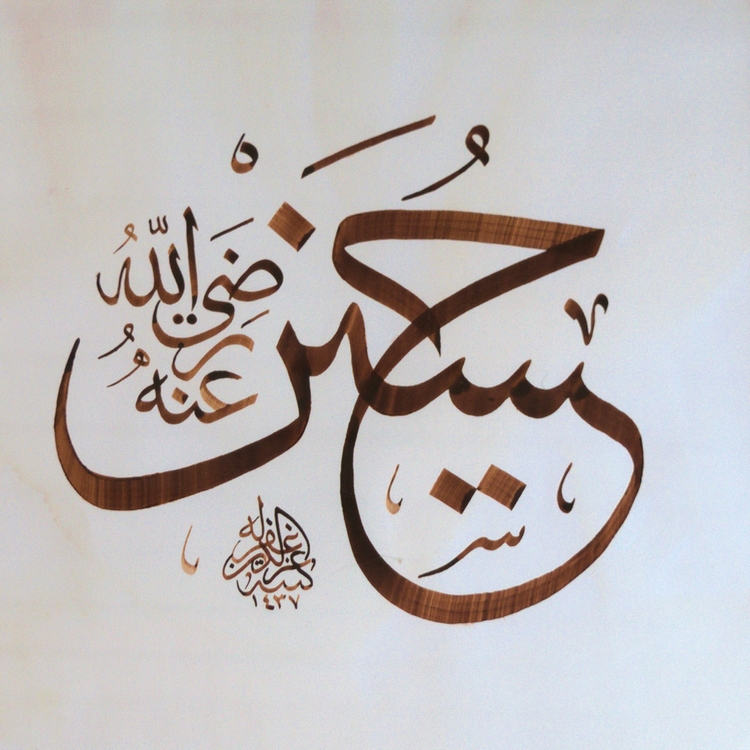 حُسَيْن
رضي اللّه عنه
كتبه
غفر له
١٤٣٧